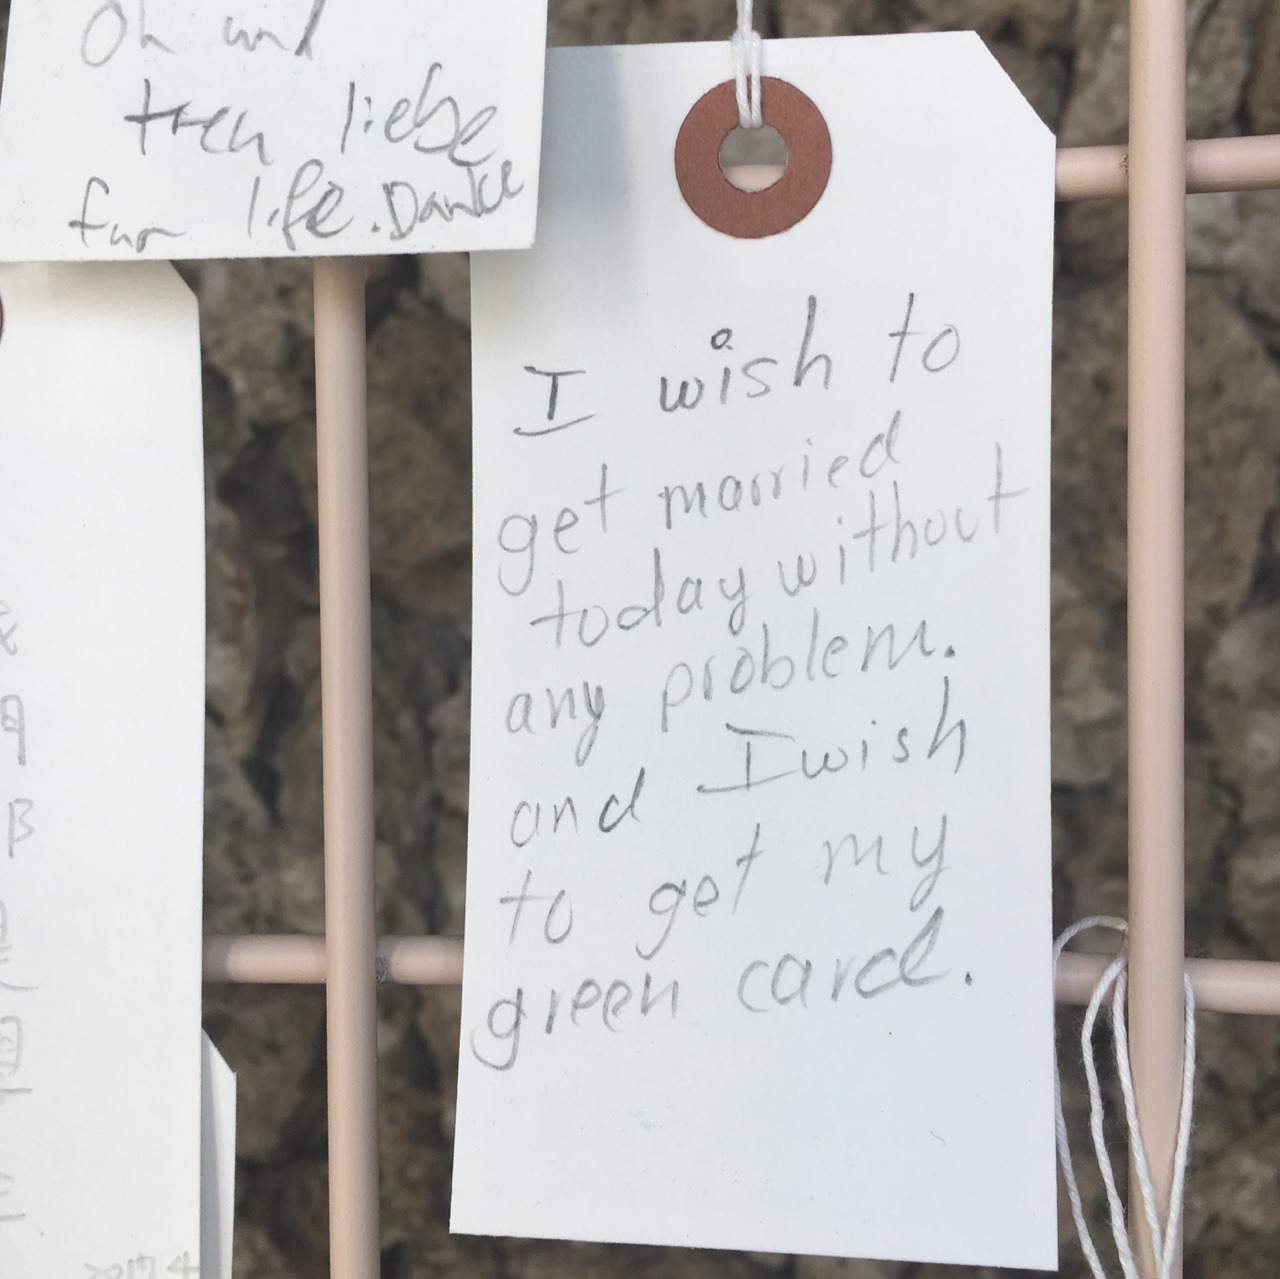 Oh und
treu liebe
fur life. Danke
I wish to
get married
today without
any problem.
and I wish
to get my
green card.
2017 4